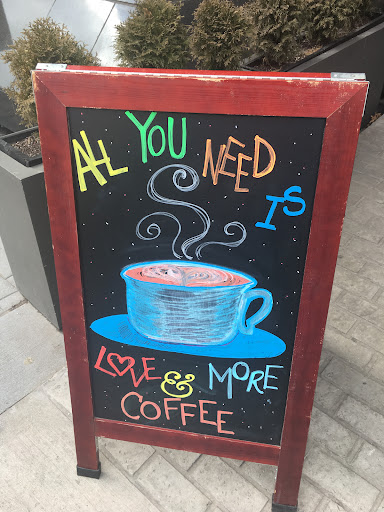 ALL YOU NEED IS
LOVE & MORE
COFFEE